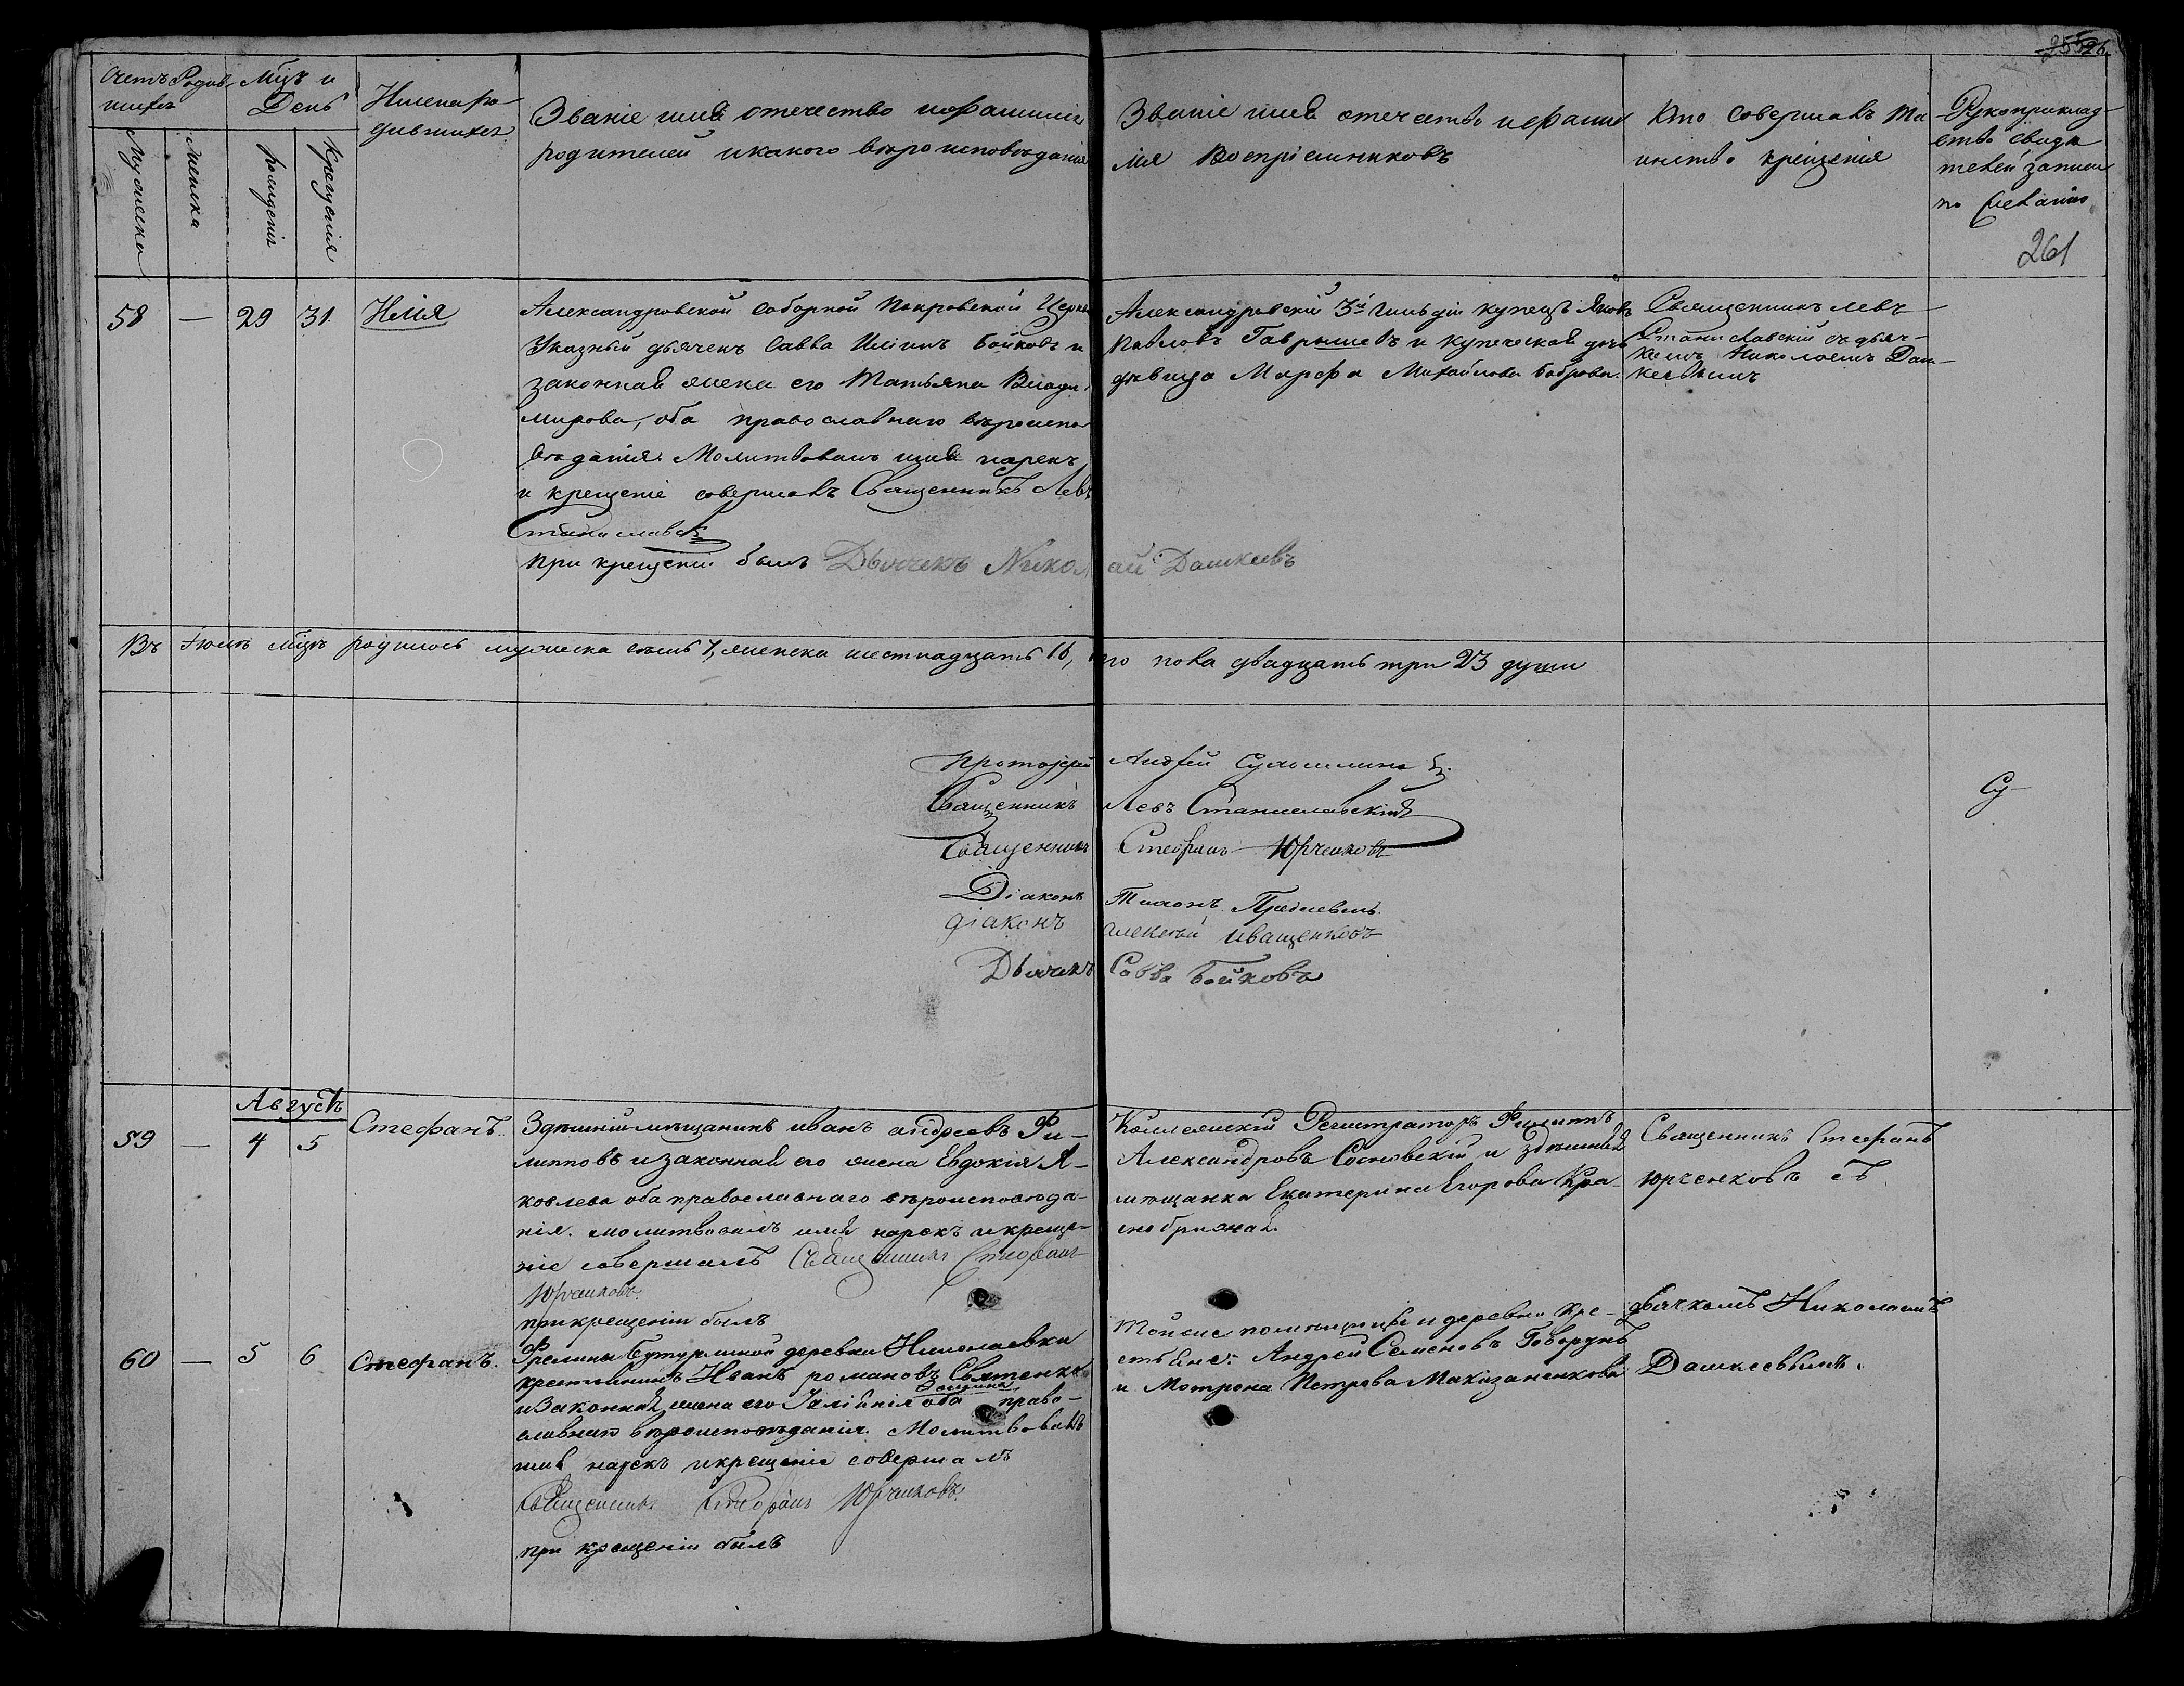 255 26
Счетъ Родив-
шихся
Мцъ и
День
Имена ро-
дившихся
Званіе имя отечество и фамилія
родителей и какого вѣроисповѣданія
Званіе имя отечество и фами
лія Воспріемниковъ
Кто совершалъ Та
инство крещенія
Рукоприклад-
ство свидѣ
телей записи
по желанію
Мужеска
Женска
рожденія
Крещенія
261
58 — 29 31 Илія
Александровской соборной Покровской Церкви
Указный дьячекъ Савва Иліинъ Бойковъ и
законная жена его Татьяна Влади-
мирова, оба православнаго вѣроиспо
вѣданія. Молитвовалъ имя нарекъ
и крещеніе совершалъ Священникъ Левъ
Станиславскій
при крещеніи былъ Дьячекъ Николай Дашкеевъ
Александровскій 3й гильдіи купецъ Яковъ
Павловъ Гаврышевъ и купеческая дочь
дѣвица Марфа Михайлова Боброва.
Священникъ Левъ
Станиславскій съ дьяч-
комъ Николаемъ Даш-
кевымъ
Въ Іюлѣ мцѣ родилось мужеска семь 7, женска шестнадцать 16, его пола двадцать три 23 души
Протоіерей Андрей
Священникъ Левъ Станиславскій
Священникъ Стефанъ Юрченковъ
Діаконъ Тихонъ
діаконъ алексѣй иващенковъ
Дьячекъ Савва Бойковъ
Су-
Августъ
59 — 4 5 Стефанъ.
Здѣшній мѣщанинъ иванъ андреевъ Фи-
липповъ и законная его жена Евдокія Я-
ковлева оба православнаго вѣроисповѣда-
нія. молитвовалъ имя нарекъ и креще-
ніе совершалъ Священникъ Стефанъ
Юрченковъ.
при крещеніи былъ
Коллежскій Регистраторъ Филиппъ
Александровъ Сосновскій и здѣшняя
мѣщанка Екатерина Егорова Кра-
Священникъ Стефанъ
Юрченковъ съ
60 — 5 6 Стефанъ.
Фрелины Бутурлиной деревни Николаевки
крестьянинъ Иванъ романовъ Святенко
и Законная жена его оба право-
славнаго вѣроисповѣданія. Молитвовалъ
имя нарекъ и крещеніе совершалъ
Священникъ Стефанъ Юрченковъ.
при крещеніи былъ
Тойже помѣщицы и деревни Кре-
стьяне: Андрей Семеновъ Говорунъ
и Мотрона Петрова
дьячкомъ Николаемъ
Дашкеевымъ.